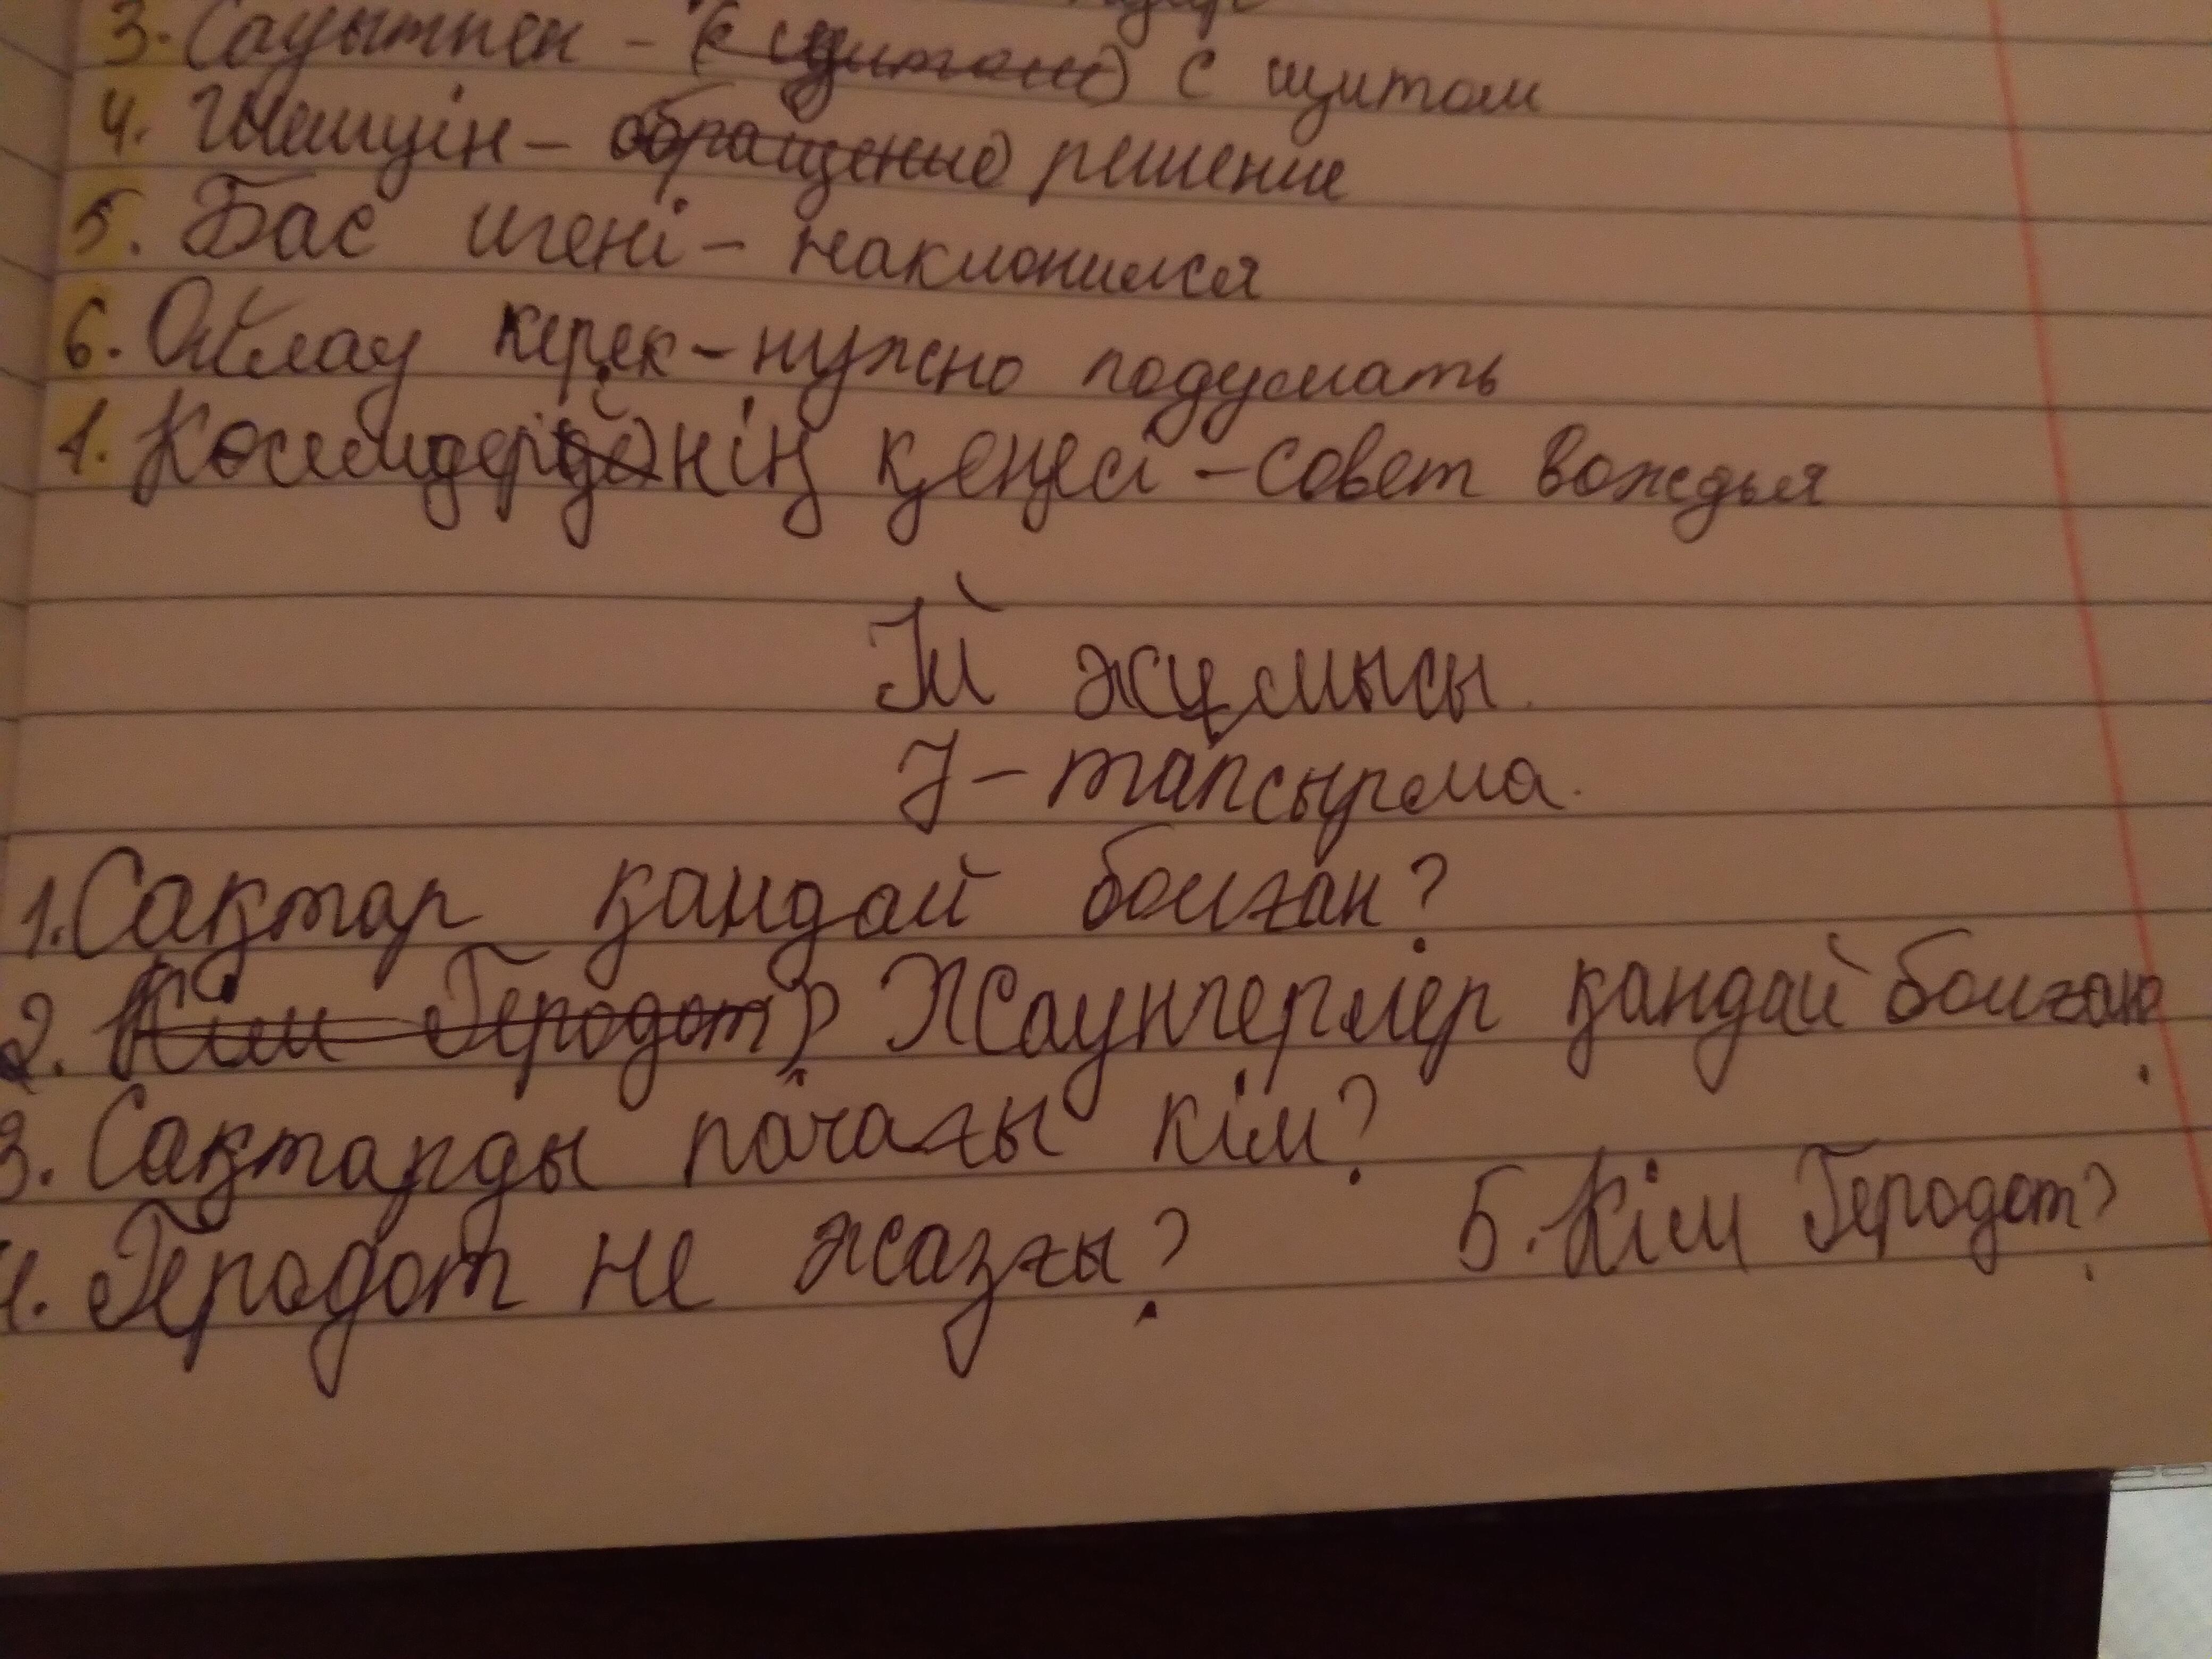 3. Сауытпен - (с щитом) с щитом
4. Шешуін - обращение) решение
5. Бас игені - наклонился
6. Ойлау керек - нужно подумать
1. Көсемдердің кеңесі - совет вождья
Үй жұмысы.
7 - тапсырма.
1. Сақтар қандай болған?
2. Кім Геродот? Жаунгерлер қандай болған?
3. Сақтарды пачағы кім?
4. Геродот не жазғы?
5. Кім Геродот?